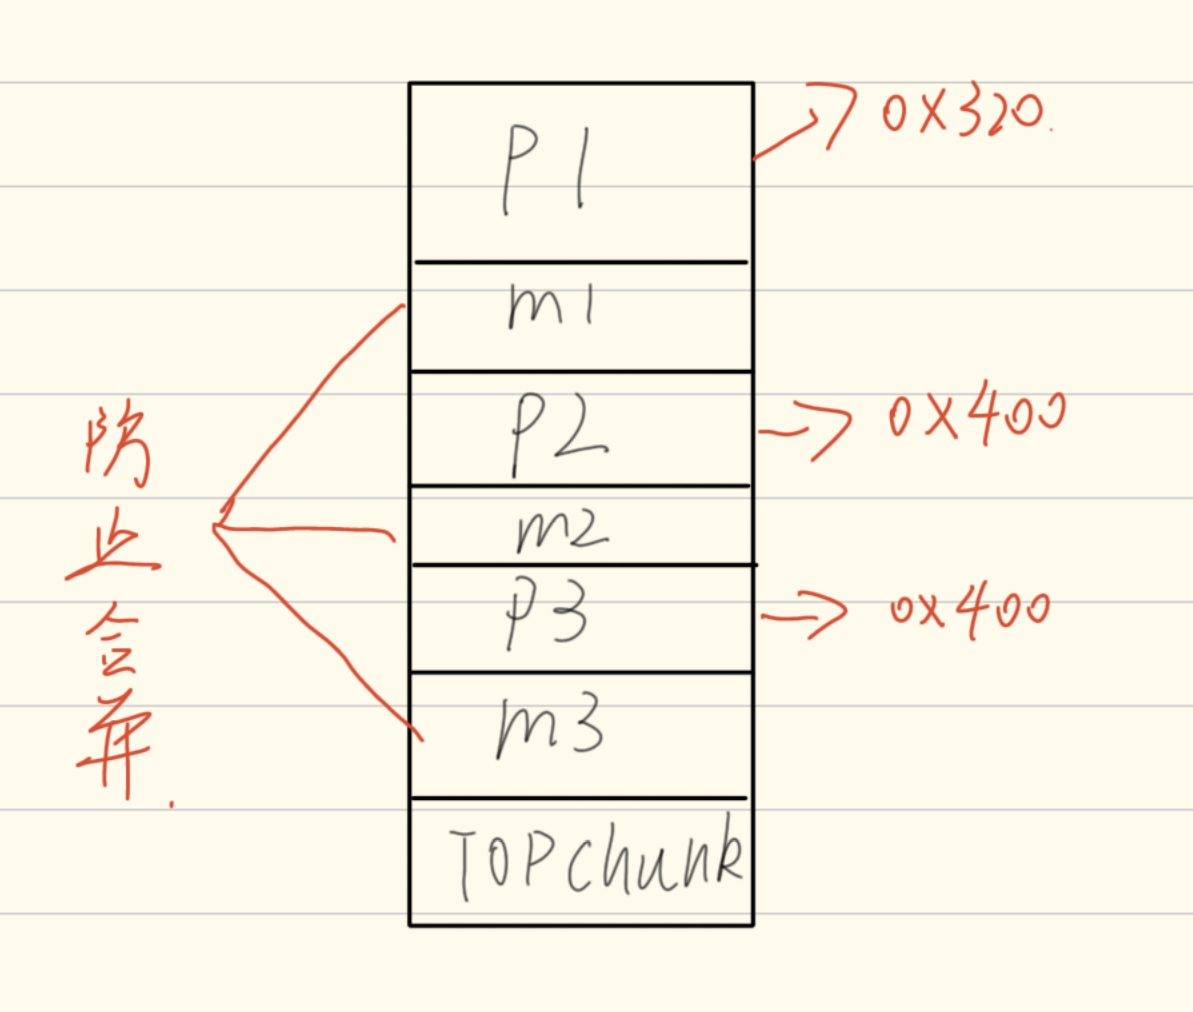 P1
0X320.
m1
P2
0X400
m2
P3
0X400
m3
TOPchunk
防
止
合
并.